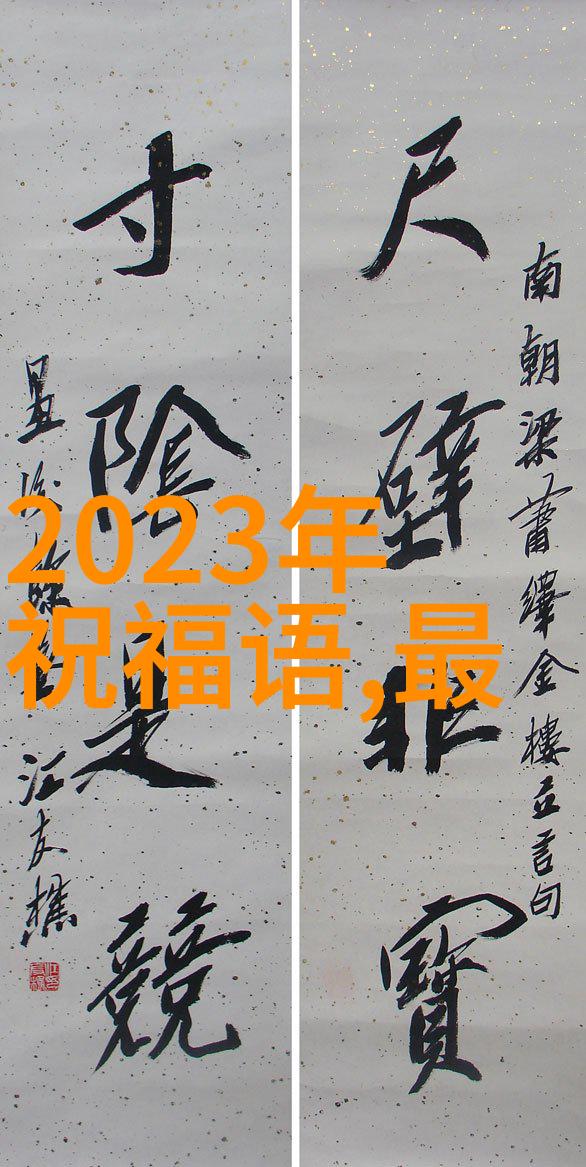 尺璧非寶
南朝梁蕭繹金樓立言句
寸陰是競
江友樵
2023年
祝福语,最